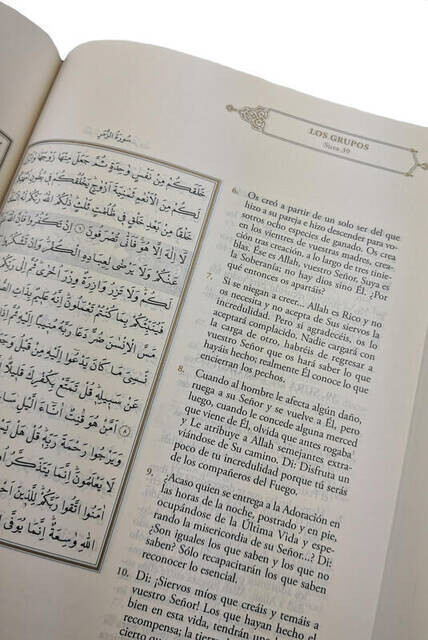 سُورَةُ الزُّمَرِ
خَلَقَكُم مِّن نَّفْسٍ وَٰحِدَةٍ ثُمَّ جَعَلَ مِنْهَا زَوْجَهَا
لَكُم مِّنَ ٱلْأَنْعَٰمِ ثَمَٰنِيَةَ أَزْوَٰجٍ يَخْلُقُكُمْ فِى
خَلْقًا مِّنۢ بَعْدِ خَلْقٍ فِى ظُلُمَٰتٍ ثَلَٰثٍ ذَٰلِكُمُ ٱللَّهُ رَبُّكُمْ لَهُ
لَآ إِلَٰهَ إِلَّا هُوَ فَأَنَّىٰ تُصْرَفُونَ ۝ إِن تَكْفُرُوا۟
عَنكُمْ وَلَا يَرْضَىٰ لِعِبَادِهِ ٱلْكُفْرَ وَإِن تَشْكُرُوا۟
لَكُمْ وَلَا تَزِرُ وَازِرَةٌ وِزْرَ أُخْرَىٰ ثُمَّ إِلَىٰ
فَيُنَبِّئُكُم بِمَا كُنتُمْ تَعْمَلُونَ إِنَّهُۥ عَلِيمٌۢ بِذَاتِ
مَسَّ ٱلْإِنسَٰنَ ضُرٌّ دَعَا رَبَّهُۥ مُنِيبًا إِلَيْهِ ثُمَّ
نَسِىَ مَا كَانَ يَدْعُوٓا۟ إِلَيْهِ مِن قَبْلُ
عَن سَبِيلِهِۦ قُلْ تَمَتَّعْ بِكُفْرِكَ قَلِيلًا
أَمَّنْ هُوَ قَٰنِتٌ ءَانَآءَ ٱلَّيْلِ
وَيَرْجُوا۟ رَحْمَةَ رَبِّهِۦ قُلْ هَلْ
لَا يَعْلَمُونَ إِنَّمَا يَتَذَكَّرُ
ءَامَنُوا۟ ٱتَّقُوا۟ رَبَّكُمْ لِلَّذِينَ
ٱللَّهِ وَٰسِعَةٌ إِنَّمَا يُوَفَّى
LOS GRUPOS
Sura 39
6. Os creó a partir de un solo ser del que
hizo a su pareja e hizo descender para vo-
sotros ocho especies de ganado. Os crea
en los vientres de vuestras madres, crea-
ción tras creación, a lo largo de tres tinie-
blas. Ese es Allah, vuestro Señor, Suya es
la Soberanía; no hay dios sino Él. ¿Por
qué entonces os apartáis?
7. Si se niegan a creer... Allah es Rico y no
os necesita y no acepta de Sus siervos la
incredulidad. Pero si agradecéis, os lo
aceptará complacido. Nadie cargará con
la carga de otro, habréis de regresar a
vuestro Señor que os hará saber lo que
hayáis hecho; realmente Él conoce lo que
encierran los pechos.
8. Cuando al hombre le afecta algún daño,
ruega a su Señor y se vuelve a Él, pero
luego, cuando le concede alguna merced
que viene de Él, olvida que antes rogaba
y Le atribuye a Allah semejantes extra-
viándose de Su camino. Di: Disfruta un
poco de tu incredulidad porque tú serás
de los compañeros del Fuego.
9. ¿Acaso quien se entrega a la Adoración en
las horas de la noche, postrado y en pie,
ocupándose de la Última Vida y espe-
rando la misericordia de su Señor...? Di:
¿Son iguales los que saben y los que no
saben? Sólo recapacitarán los que saben
reconocer lo esencial.
10. Di: ¡Siervos míos que creáis y temáis a
vuestro Señor! Los que hayan hecho el
bien en esta vida, tendrán una hermosa
recompensa; la tierra
cierto que